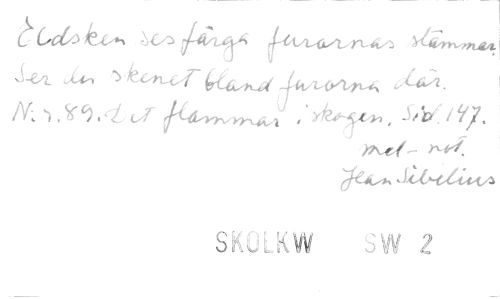 Eldsken ses färga furornas stammar.
Ser du skenet bland furorna där.
N:r. 89. Det flammar i skogen. Sid. 147.
mel-not.
Jean Sibelius
SKOLKW SW 2